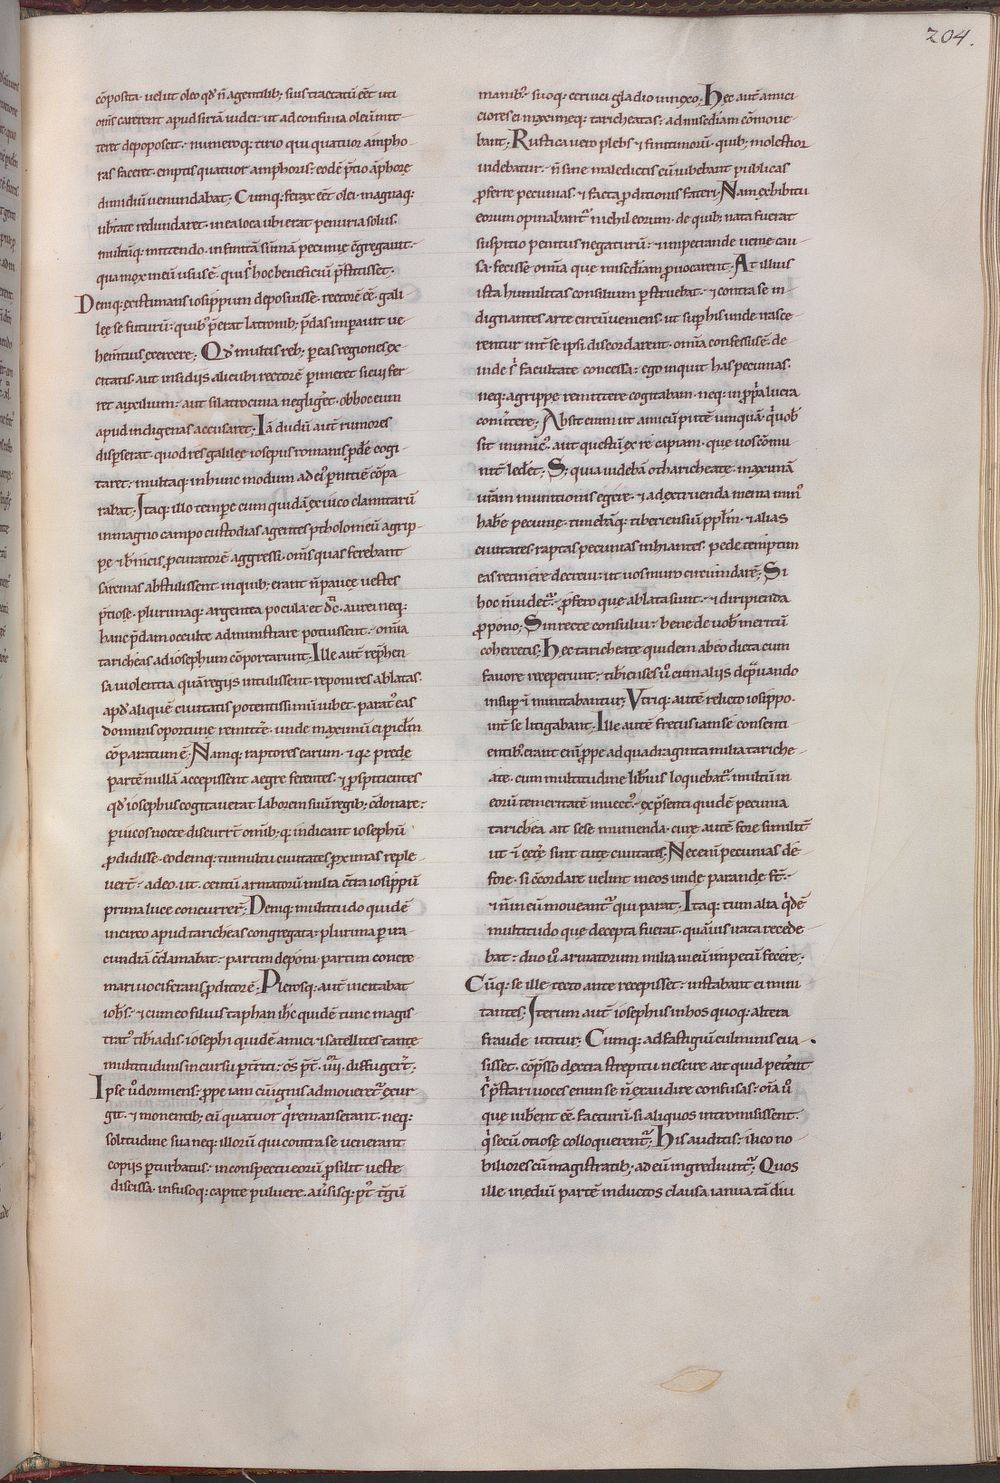 204.
cōposita. velut oleo qd̄ n̄ a gentilib; suis tractatū eēt uti
om̄s caverent apud siriā iudei. ut ad confinia oleū mit-
teret depoposcit. numeroq; tirio qui quatuor ampho-
ras faceret. emptis quatuor amphoris: eodē p̄tio āphorę
dimidiū uenundabat; Cumq; ferax eēt olei. magnaq;
ub̄tate redundaret. in ea loca ubi erat penuria solus.
multūq; mittendo. infinitā sūmā pecunię c̄gregauit.
qua mox in eū usus ē. qui s' hoc beneficiū p̄stitisset.
Deniq; existimans iosippum deposuisse. rectorē eē gali
lee se futurū: quibꝰ p̄erat latronib; p̄das imperauit ue
hem̄tius exercere; Qd̄ multis reb; p eas regiones ex
citatis. aut insidiis alicubi rectorē perimeret si cui fer
ret auxilium: aut si latrocinia neglig̓et. ob hoc eum
apud indigenas accusaret; Iā dudū aut̄ rumores
disp̄serat. quod res galilee iosepus romanis p̄dē cogi
taret. multaq; in hunc modum ad eiꝰ p̄nitiē cōpa
rabat. Itaq; illo tempore cum quidā ex uico clamitarū
in magno campo custodias agentes ptholomeū agrip-
pę & b̄nicis pcuratorē aggressi. om̄s quas ferebant
sarcinas abstulissent in quib; erant n̄ paucę uestes
p̄tiosę. plurimaq; argentea pocula et dc̄. aurei neq;
hanc p̄dam occulte administrare potuissent. om̄ia
taricheas ad iosephum cōportarunt; Ille aut̄ rep̄hen
sa uiolentia quā regiis intulissent. reponi res ablatas.
apd̄ aliquē ciuitatis potentissimū iubet. paratꝰ eas
dominis oportune remitt̄e. unde maximū ei piclm̄
cōparatum ē. Namq; raptores earum. & q; prede
partē nullā accepissent aegre ferentes. & pspicientes
qd̄ iosephus cogitauerat laborem suū regib; c̄donare:
p uicos nocte discurr̄t omīb; q; indicant iosephū
pdidisse. eodemq; tumultu ciuitates pximas reple
uert̄. adeo. ut. centū armatorū milia c̄tra iosippū
prima luce concurrer̄t; Deniq; multitudo quidē
in circo apud taricheas congregata. plurima p ira
cundiā c̄clamabat. partim deponi. partim concre
mari uociferans pditorē. Plerosq; aut̄ incitabat
ioh̄s. & cum eo filius taphan ih̄c quidē tunc magis
tratꝰ tib̄iadis. iosephi quidē amici & satellites tantę
multitudinis incursu ptīti. oī̄s p̄t̄. iiii. diffuger̄t.
Ipse ū dormiens: ppe iam cū ignis admoueret̄ excur
git. & monentib; eū quatuor q̓ remanserant. neq;
solitudine sua neq; illorū qui contra se uenerant
copiis pturbatus. in conspectu eorū psilit ueste
discissa. infusoq; capite puluere. au̓sisq; p̓t t̄gū
manibꝰ. suoq; ceruici gladio innexo. Hec aut̄ amici
ciores ei maximeq; taricheatas. ad misediam cōmoue-
bant; Rustica uero plebs & finitimorū. quib; molestior
uidebatur. n̄ sine maledictis eū iubebant publicas
pferre pecunias. & facta pditionis fateri. Nam ex habitu
eorum opinabant̄ nichil eorum. de quib; nata fuerat
suspitio penitus negaturū. & impetrande uenie cau
sa. fecisse om̄ia que misediam puocarent. At illius
ista humilitas consilium p̄struebat. & contra se in
dignantes arte circūueniens. ut sup his unde nasce
rentur int̄ se ipsi discordarent. om̄ia confessus ē. de
inde s' facultate concessa: ego inquit has pecunias.
neq; agrippe remittere cogitabam. neq; in pp̄a lucra
conu̓tere; Absit enim ut amicū putē unquā. q̓ uob̄
sit inimicꝰ. aut questū ex re capiam. que uos cōmu
nit̄ ledet; S; quia uidebā o tharicheate. maximā
uiam munitionis egere. & ad extruenda menia
hab̄e pecunię. timebāq; tiberiensiū pplm̄. & alias
ciuitates. raptas pecunias inhiantes. pedetemptim
eas retinere decreui. ut uos muro circūndarē; Si
hoc n̄ uidet̄. pfero que ablata sunt. & diripienda
ppono; Sin recte consului. bene de uob̄ meritū
coh̄ercetis. Hec taricheate quidem ab eo dicta cum
fauore receperunt. tib̄ienses ū cum aliis dep̄uando
insup & minitabantur; Vtriq; autē relicto iosippo.
int̄ se litigabant. Ille autē fretus iam se consenti
entibꝰ. erant eni ppe ad quadraginta milia tariche
ate. cum multitudine lib̄ius loquebat̄. multū in
eorū temeritatē inuectꝰ. ex p̄senti quidē pecunia
tarichea ait sese munienda. cure autē fore similit̄
ut & cęt̄ę sint tutę ciuitates. Nec eni pecunias de
fore. si c̄cordare uelint in eos unde parande st̄.
& n̄ in eū moueant̄ qui parat. Itaq; tum alia q̓dē
multitudo que decepta fuerat. quāuis irata recede
bat. duo ū armatorum milia in eū impetū fecere.
Cūq; se ille tecto ante recepisset. instabant ei mini
tantes; Iterum aut̄ iosephus in hos quoq; altera
fraude utitur; Cumq; ad fastigiū culminis eua
sisset. cōp̄sso dextra strepitu nescire ait quid peterent
s' p̄stari uoces enim se n̄ exaudire confusas. oīa ū
que iub̄ent eē facturū. si aliquos intromisissent.
q̓ secū otiose colloquerent̄; His auditis: ilico no
biliores cū magistratib; ad eū ingrediunt̄; Quos
ille in ędiū partē inductos clausa ianua tā diu